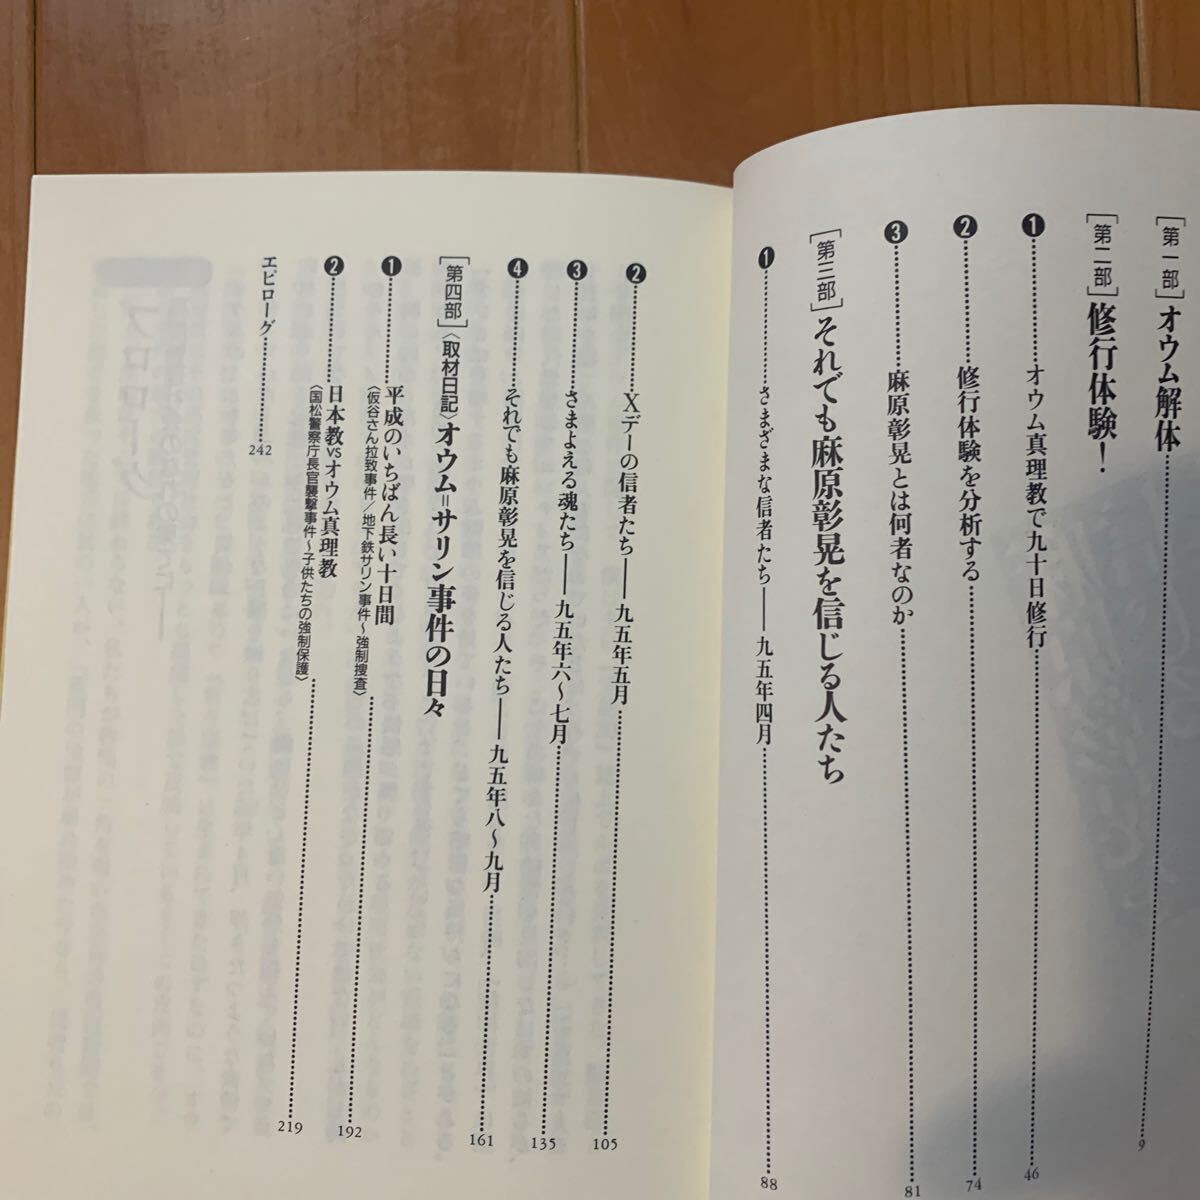 ［第一部］オウム解体……9
［第二部］修行体験！
❶……オウム真理教で九十日修行……46
❷……修行体験を分析する……74
❸……麻原彰晃とは何者なのか……81
［第三部］それでも麻原彰晃を信じる人たち
❶……さまざまな信者たち――九五年四月……88
❷……Xデーの信者たち――九五年五月……105
❸……さまよえる魂たち――九五年六〜七月……135
❹……それでも麻原彰晃を信じる人たち――九五年八〜九月……161
［第四部］〈取材日記〉オウム＝サリン事件の日々
❶……平成のいちばん長い十日間
〈仮谷さん拉致事件／地下鉄サリン事件〜強制捜査〉……192
❷……日本教vsオウム真理教
〈国松警察庁長官襲撃事件〜子供たちの強制保護〉……219
エピローグ……242